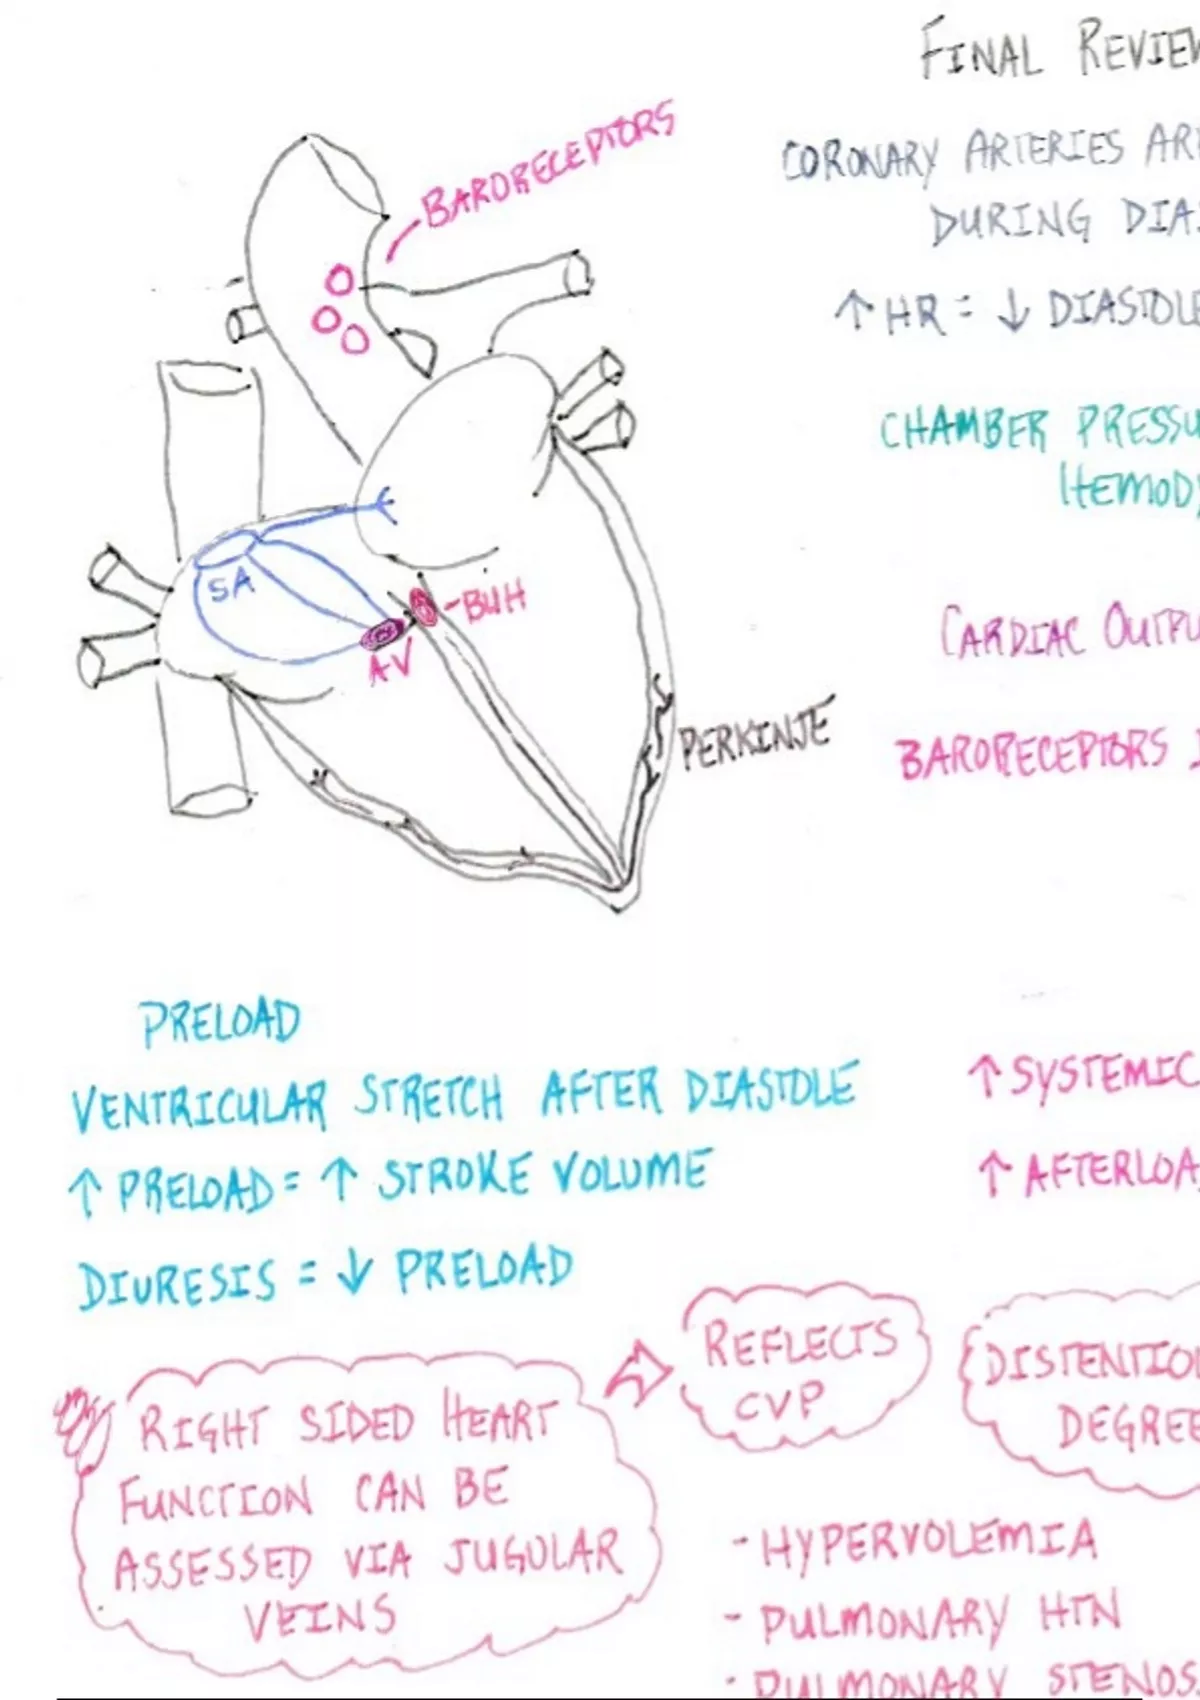 FINAL REVIEW
CORONARY ARTERIES AR
DURING DIAS
↑ HR = ↓ DIASTOLE
CHAMBER PRESSU
HEMODY
CARDIAC OUTPU
BARORECEPTORS
BARORECEPTORS
SA
AV
-BUH
PERKINJE
PRELOAD
VENTRICULAR STRETCH AFTER DIASTOLE
↑ PRELOAD = ↑ STROKE VOLUME
DIURESIS = ↓ PRELOAD
↑ SYSTEMIC
↑ AFTERLOA
RIGHT SIDED HEART
FUNCTION CAN BE
ASSESSED VIA JUGULAR
VEINS
REFLECTS
CVP
DISTENTION
DEGREE
- HYPERVOLEMIA
- PULMONARY HTN
- PULMONARY STENOS